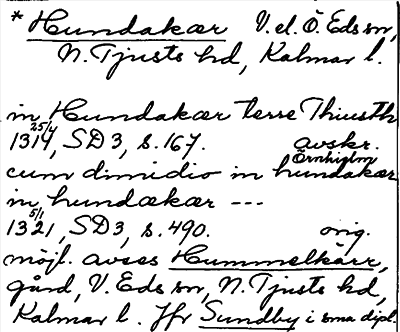 * Hundakær V. el. Ö. Eds sn,
N. Tjusts hd, Kalmar l.
in Hundakær terre Thiusth
1314 25/4, SD 3, s. 167. avskr.
cum dimidio in hundakær Örnhielm
in hundækær ---
1321 5/1, SD 3, s. 490. orig.
möjl. avses Hummelkärr,
gård, V. Eds sn, N. Tjusts hd,
Kalmar l. Jfr Sundby i sma dipl.